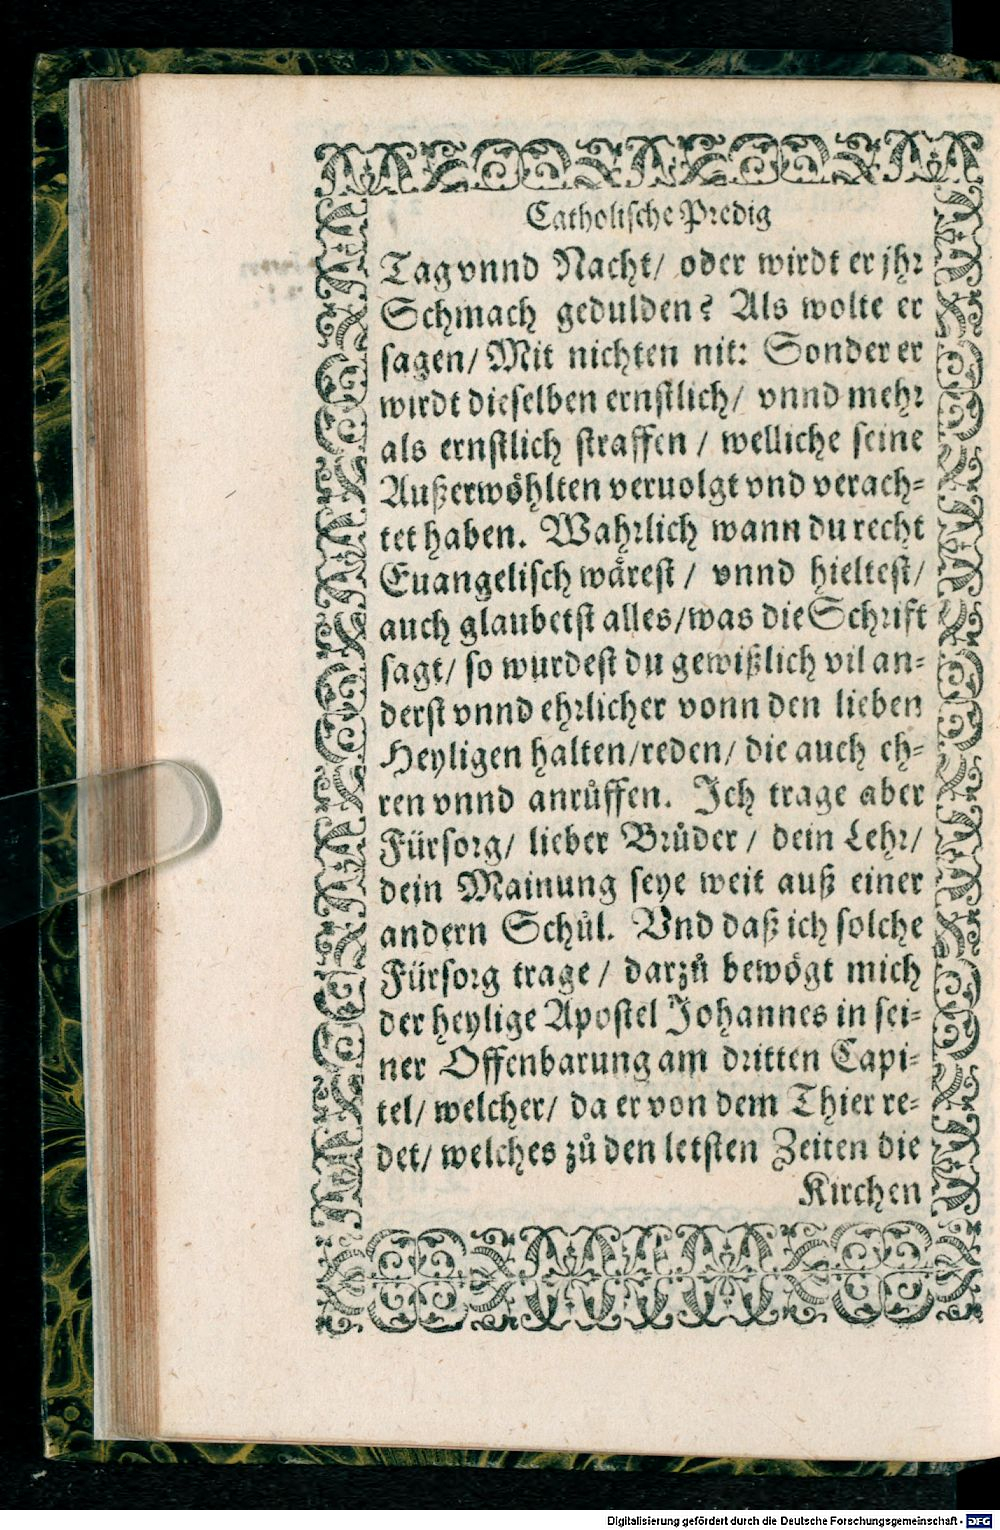 Catholische Predig
Tag vnnd Nacht/ oder wirdt er jhr
Schmach gedulden? Als wolte er
sagen/ Mit nichten nit: Sonder er
wirdt dieselben ernstlich/ vnnd mehr
als ernstlich straffen / welliche seine
Außerwöhlten veruolgt vnd verach-
tet haben. Wahrlich wann du recht
Euangelisch wärest / vnnd hieltest/
auch glaubetst alles/was die Schrift
sagt/ so wurdest du gewißlich vil an-
derst vnnd ehrlicher vonn den lieben
Heyligen halten/reden/ die auch eh-
ren vnnd anrůffen. Ich trage aber
Fürsorg/ lieber Brůder / dein Lehr/
dein Mainung seye weit auß einer
andern Schůl. Vnd daß ich solche
Fürsorg trage / darzů bewögt mich
der heylige Apostel Johannes in sei-
ner Offenbarung am dritten Capi-
tel/ welcher/ da er von dem Thier re-
det/ welches zů den letsten Zeiten die
Kirchen
Digitalisierung gefördert durch die Deutsche Forschungsgemeinschaft - DFG